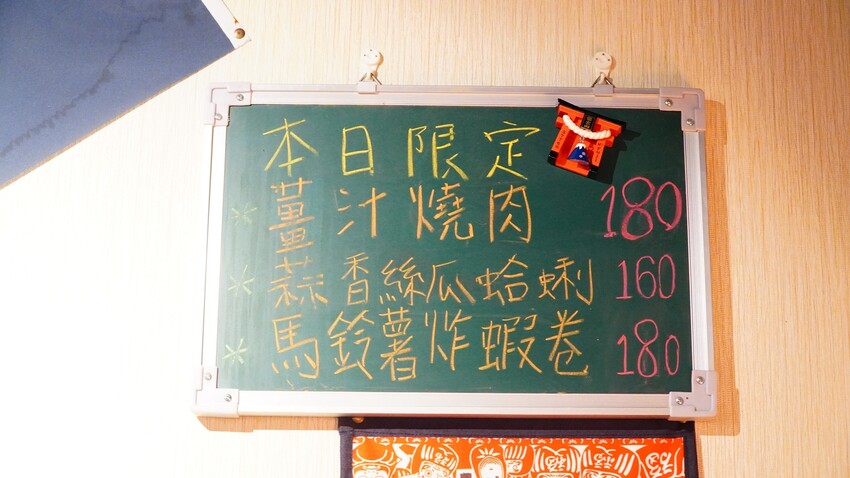 本日限定
* 薑汁燒肉 180
* 蒜香絲瓜蛤蜊 160
* 馬鈴薯炸蝦卷 180